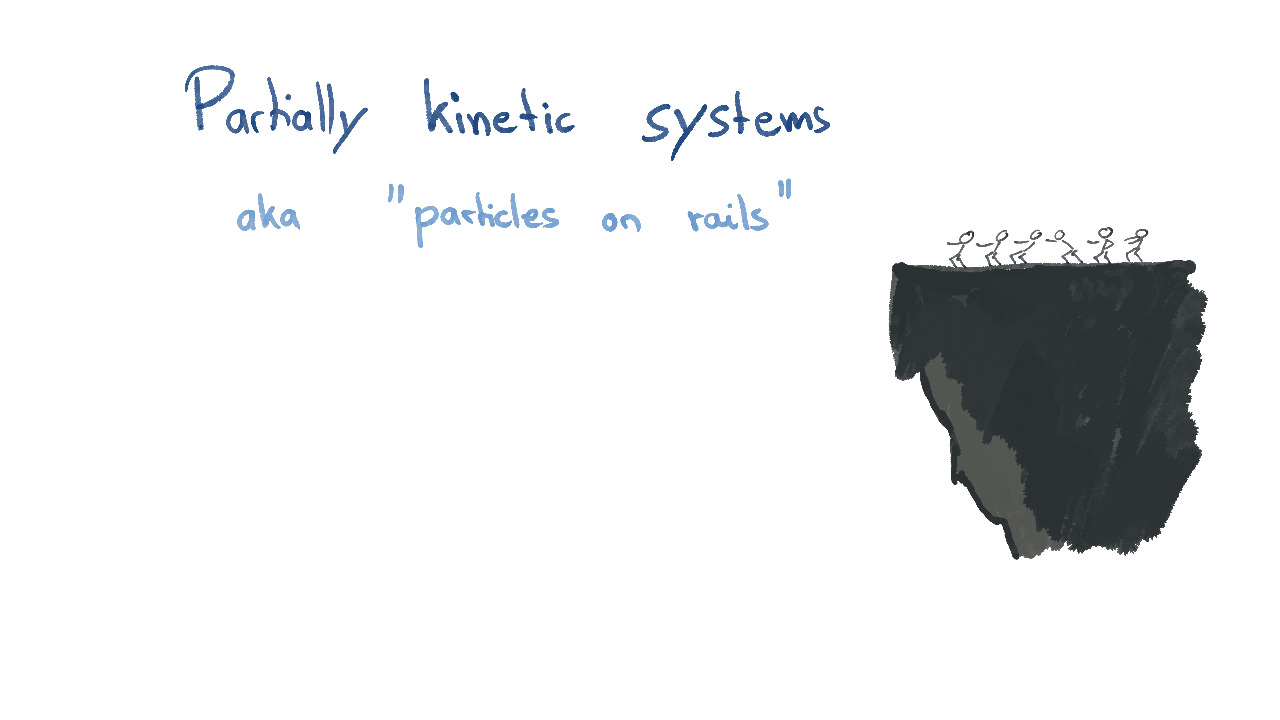 Partially kinetic systems
aka "particles on rails"